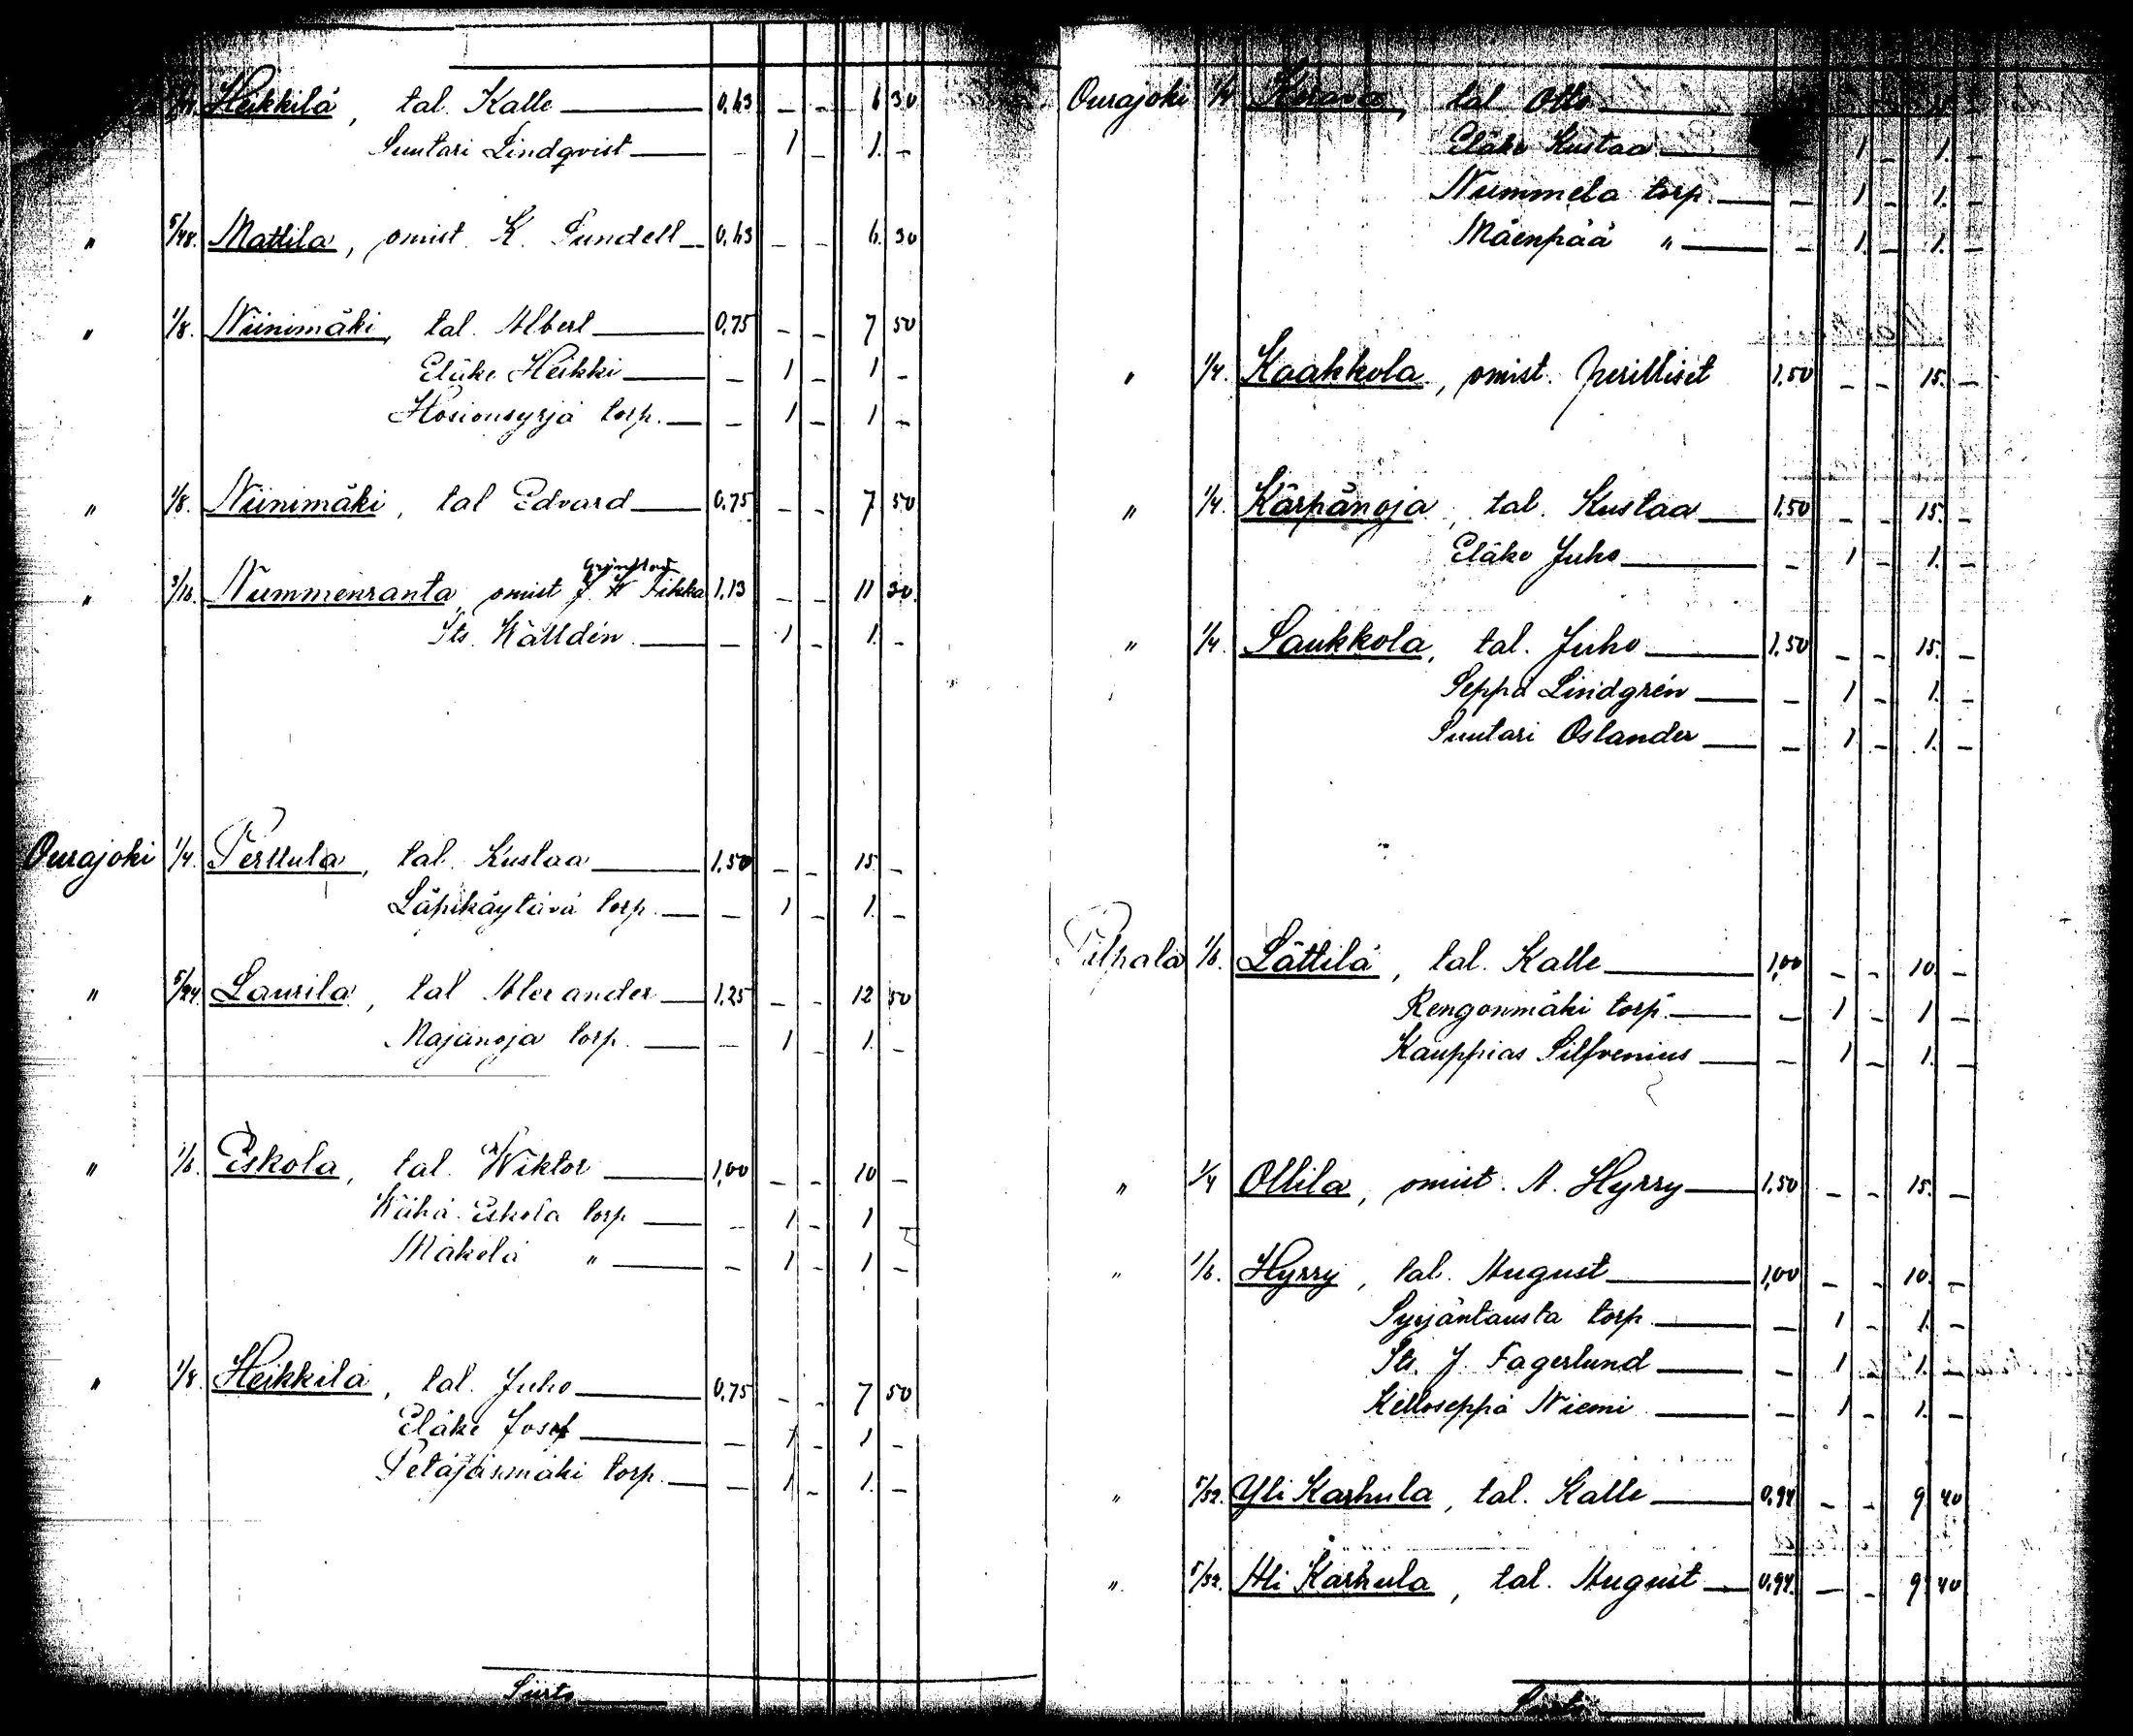 Heikkilä, tal. Kalle 0,63 - - 6 30
Suutari Lindqvist - 1 - 1. -
" 5/48. Mattila, omist. K. Sundell 0,63 - - 6. 30
" 1/8. Niinimäki, tal. Albert 0,75 - - 7 50
Eläke Heikki - 1 - 1 -
Hosionsyrjä torp. - 1 - 1 -
" 1/8. Niinimäki, tal Edvard 0,75 - - 7 50
" 3/16. Nummenranta, omist J. W Sikka 1,13 - - 11 30.
Its. Wälldén - 1 - 1. -
Ourajoki 1/4. Perttula, tal. Kustaa 1,50 - - 15. -
Läpikäytävä torp. - 1 - 1. -
" 5/24. Laurila, tal Alexander 1,25 - - 12 50
Majanoja torp. - 1 - 1. -
" 1/6. Eskola, tal. Wiktor 1,00 - - 10 -
Wähä-Eskola torp - 1 - 1 -
Mäkelä " - 1 - 1 -
" 1/8. Heikkilä, tal. Juho 0,75 - - 7 50
Eläke Josef - 1 - 1 -
Petäjäsmäki torp. - 1 - 1. -
Siirto
Ourajoki 1/4 Kerava, tal Otto
Eläke Kustaa 1 - 1. -
Nummela torp. - 1 - 1. -
Mäenpää " - 1. - 1. -
" 1/4. Kaakkola, omist. perilliset 1,50 - - 15. -
" 1/4. Kärpänoja, tal. Kustaa 1,50 - - 15. -
Eläke Juho - 1 - 1. -
" 1/4. Saukkola, tal. Juho 1,50 - - 15. -
Seppä Lindgrén - 1 - 1. -
Suutari Oslander - 1 - 1. -
Pilpala 1/6. Lättilä, tal. Kalle 1,00 - - 10. -
Rengonmäki torp. - 1 - 1 -
Kauppias Silfvenius - 1 - 1. -
" 1/4 Ollila, omist. A. Hyrry 1,50 - - 15. -
" 1/6. Hyrry, tal. August 1,00 - - 10. -
Syrjäntausta torp. - 1 - 1. -
Its. J. Fagerlund - 1 - 1. -
Kelloseppä Niemi - 1 - 1. -
" 5/32. Yli Karhula, tal. Kalle 0,94 - - 9 40
" 5/32. Ali Karhula, tal. August 0,94. - - 9 40
Siirto